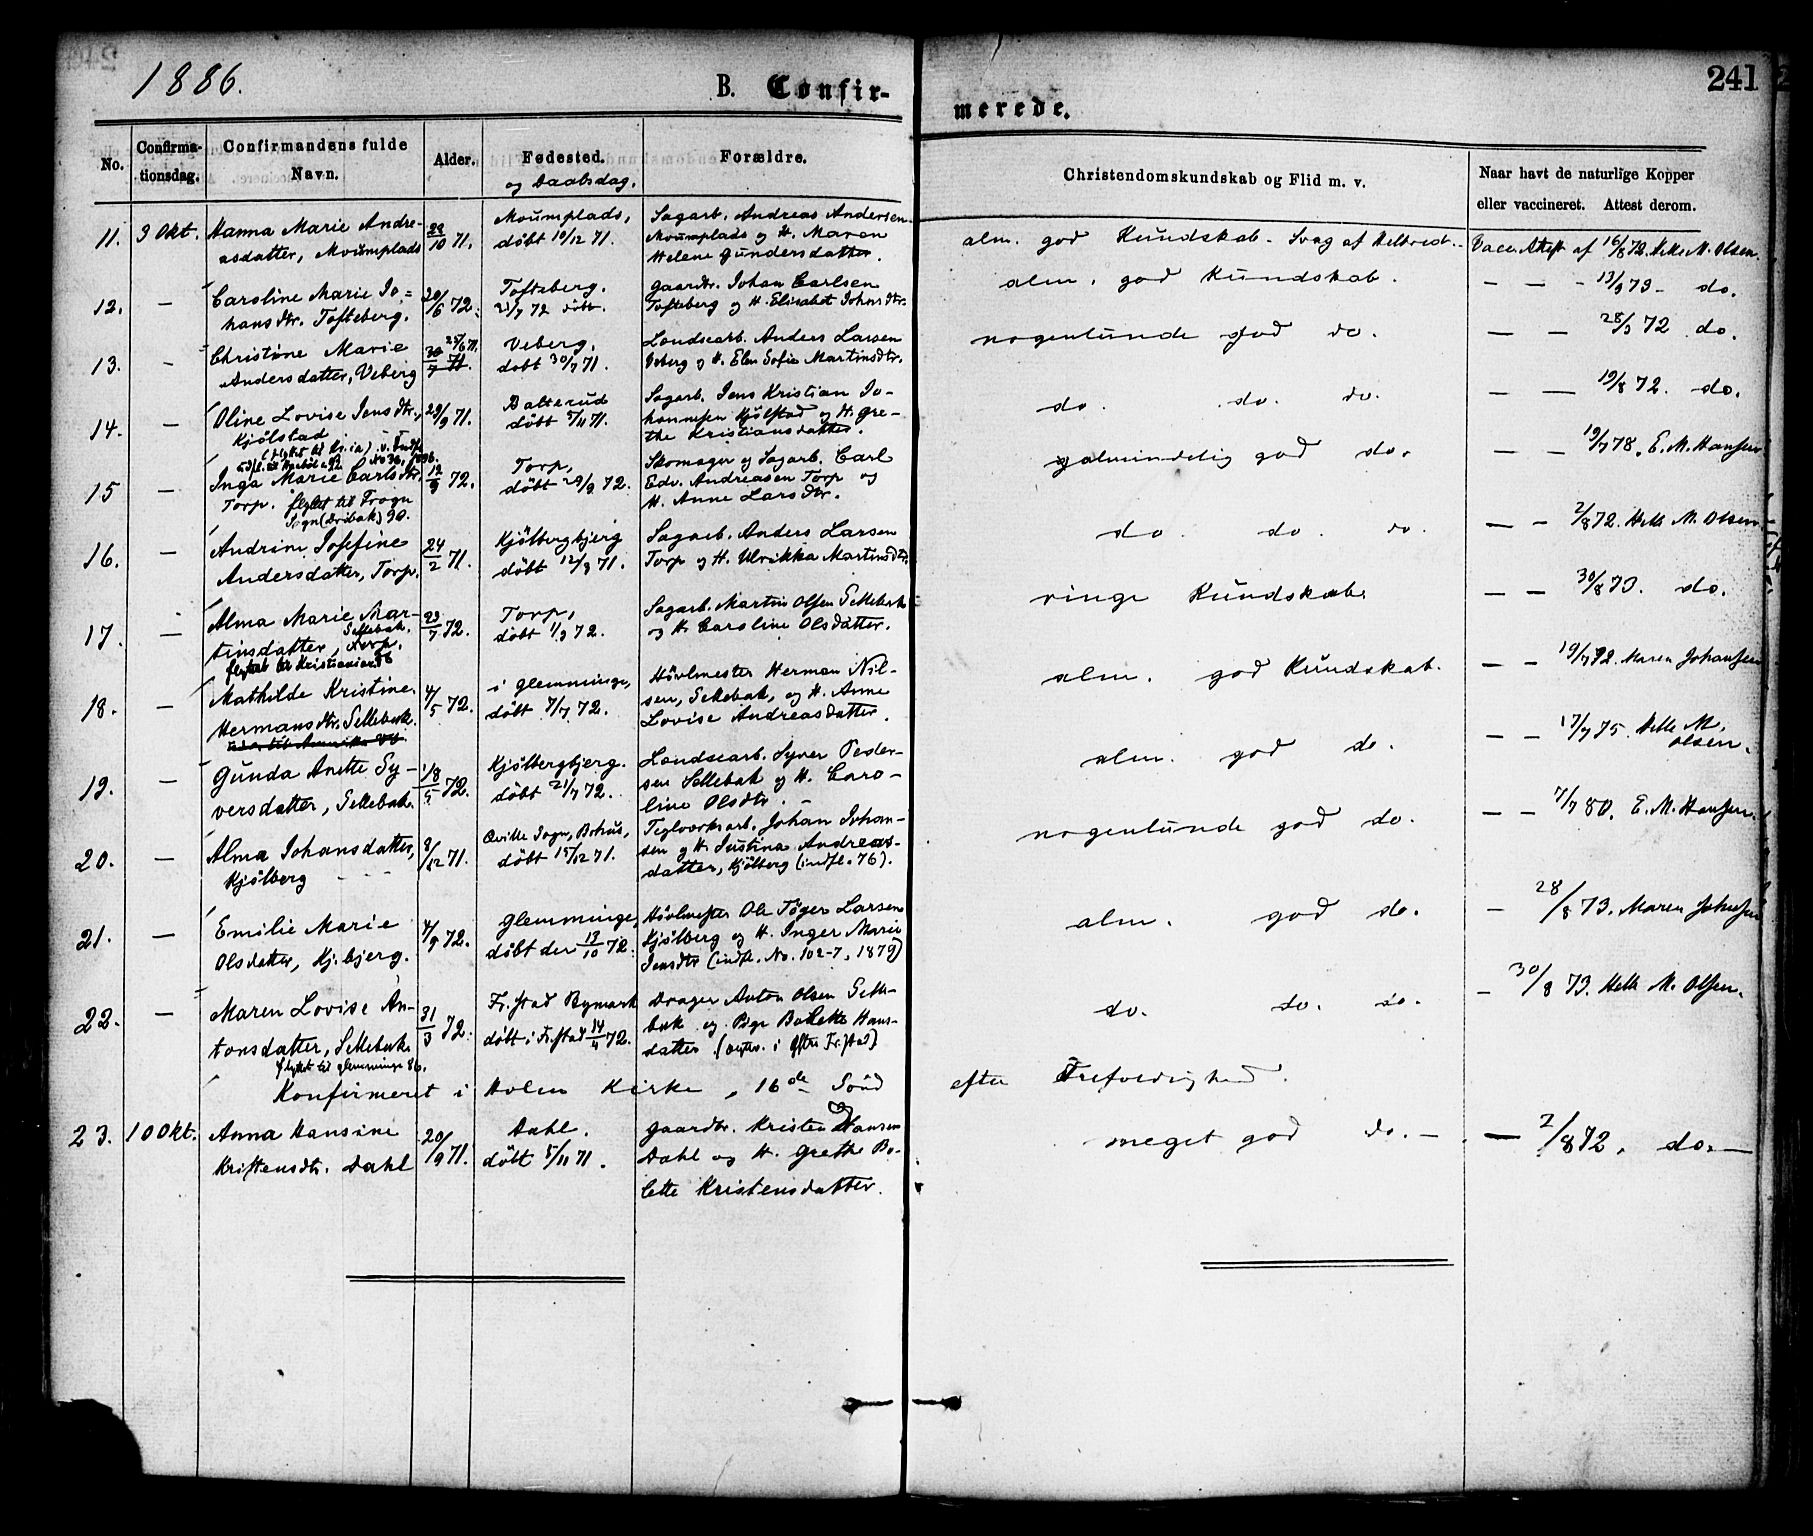 1886.
B. Confir-
merede.
241
No.
Confirma-
tionsdag.
Confirmandens fulde
Navn.
Alder.
Fødested.
og Daabsdag.
Forældre.
Christendomskundskab og Flid m. v.
Naar havt de naturlige Kopper
eller vaccineret. Attest derom.
11. 3 Okt. Hanna Marie Andre-
asdatter, Moumplads
28/10 71.
Moumplads,
døbt 10/12 71.
Sagarb. Andreas Andersen
Moumplads og H. Maren
Helene Gundersdatter.
alm. god Kundskab. Svag af Helbred.
Vacc. Attest af 16/8 72. Helle M. Olsen.
12. —
Caroline Marie Jo-
hansdtr. Tofteberg.
20/6 72.
Tofteberg.
21/7 72 døbt.
Gaardbr. Johan Carlsen
Tofteberg og H. Elisabet Johnsdtr.
alm. god Kundskab.
— — - 13/9 73 - do.
13. —
Christine Marie
Andersdatter, Veberg
25/6 71.
30/7 71.
Veberg.
døbt 30/7 71.
Landsearb. Anders Larsen
Veberg og H. Elen Sofie Martinsdtr.
nogenlunde god do.
— — 28/3 72 do.
14. —
Oline Lovise Jensdtr.,
Kjølstad
29/9 71.
Balterud
døbt 5/11 71.
Sagarb. Jens Kristian Jo-
hannesen Kjølstad og H. Gre-
the Kristiansdatter.
do. do. do.
— — 19/8 72. do.
15 —
Inga Marie Carlsdtr.
Torp. flyttet til Frogn
Sogn (Drøbak) 90.
12/9 72.
Torp,
døbt 29/9 72.
Skomager og Sagarb. Carl
Edv. Andreasen Torp og
H. Anne Larsdtr.
almindelig god do.
— — 19/7 78. E. M. Hansen
16. —
Andrine Josefine
Andersdatter, Torp.
24/2 71.
Kjølbergbjerg
døbt 12/3 71.
Sagarb. Anders Larsen
Torp og H. Ulrikka Martinsdtr.
do. do. do.
— — 2/8 72. Helle M. Olsen
17. —
Alma Marie Mar-
tinsdatter, Sellebak.
Torp.
flyttet til Kristiania 96
23/7 72.
Torp,
døbt 1/9 72.
Sagarb. Martin Olsen Sellebak
og H. Caroline Olsdatter.
ringe Kundskab.
— — 30/8 73. do.
18. —
Mathilde Kristine
Hermansdtr. Sellebak.
4/5 72.
i Glemminge,
døbt 7/7 72.
Høvlmester Herman Nil-
sen, Sellebak, og H. Anne
Lovise Andreasdatter.
alm. god Kundskab.
— — 19/7 72. Maren Johansen
19. —
Gunda Anette Sy-
versdatter, Sellebak.
18/5 72.
Kjølbergbjerg.
døbt 21/7 72.
Landsearb. Syver Peder-
sen Sellebak og H. Caro-
line Olsdtr.
alm. god do.
— — 17/7 75. Helle M.
Olsen.
20. —
Alma Johansdatter,
Kjølberg
8/12 71.
Qville Sogn, Bohus,
døbt 15/12 71.
Teglværksarb. Johan Johan-
sen og H. Justina Andreas-
datter, Kjølberg (indfl. 76).
nogenlunde god do.
— — 7/7 80. E. M. Hansen.
21. —
Emilie Marie
Olsdatter, Kj.bjerg.
4/9 72.
Glemminge,
døbt den 13/10 72.
Høvlmester Ole Tøger Larsen
Kjølberg og H. Inger Marie
Jensdtr (indfl. No. 102-7, 1879)
alm. god do.
— 28/8 73. Maren Johansen
22. —
Maren Lovise An-
tonsdatter, Sellebak.
flyttet til Glemminge 86.
31/3 72.
Fr.stad Bymark
døbt i Fr.stad 14/4 72.
Drager Anton Olsen Selle-
bak og Pige Bolette Hans-
datter.
do. do. do.
— 30/8 73. Helle M. Olsen.
Konfirmeret i Holen Kirke, 16de Sønd efter Trefoldighed.
23. 10 Okt. Anna Hansine
Kristensdtr. Dahl
20/9 71.
Dahl.
døbt 5/11 71.
Gaardbr. Kristen Hansen
Dahl og H. Grethe Bo-
lette Kristensdatter.
meget god do. —
— 2/8 72. do. —